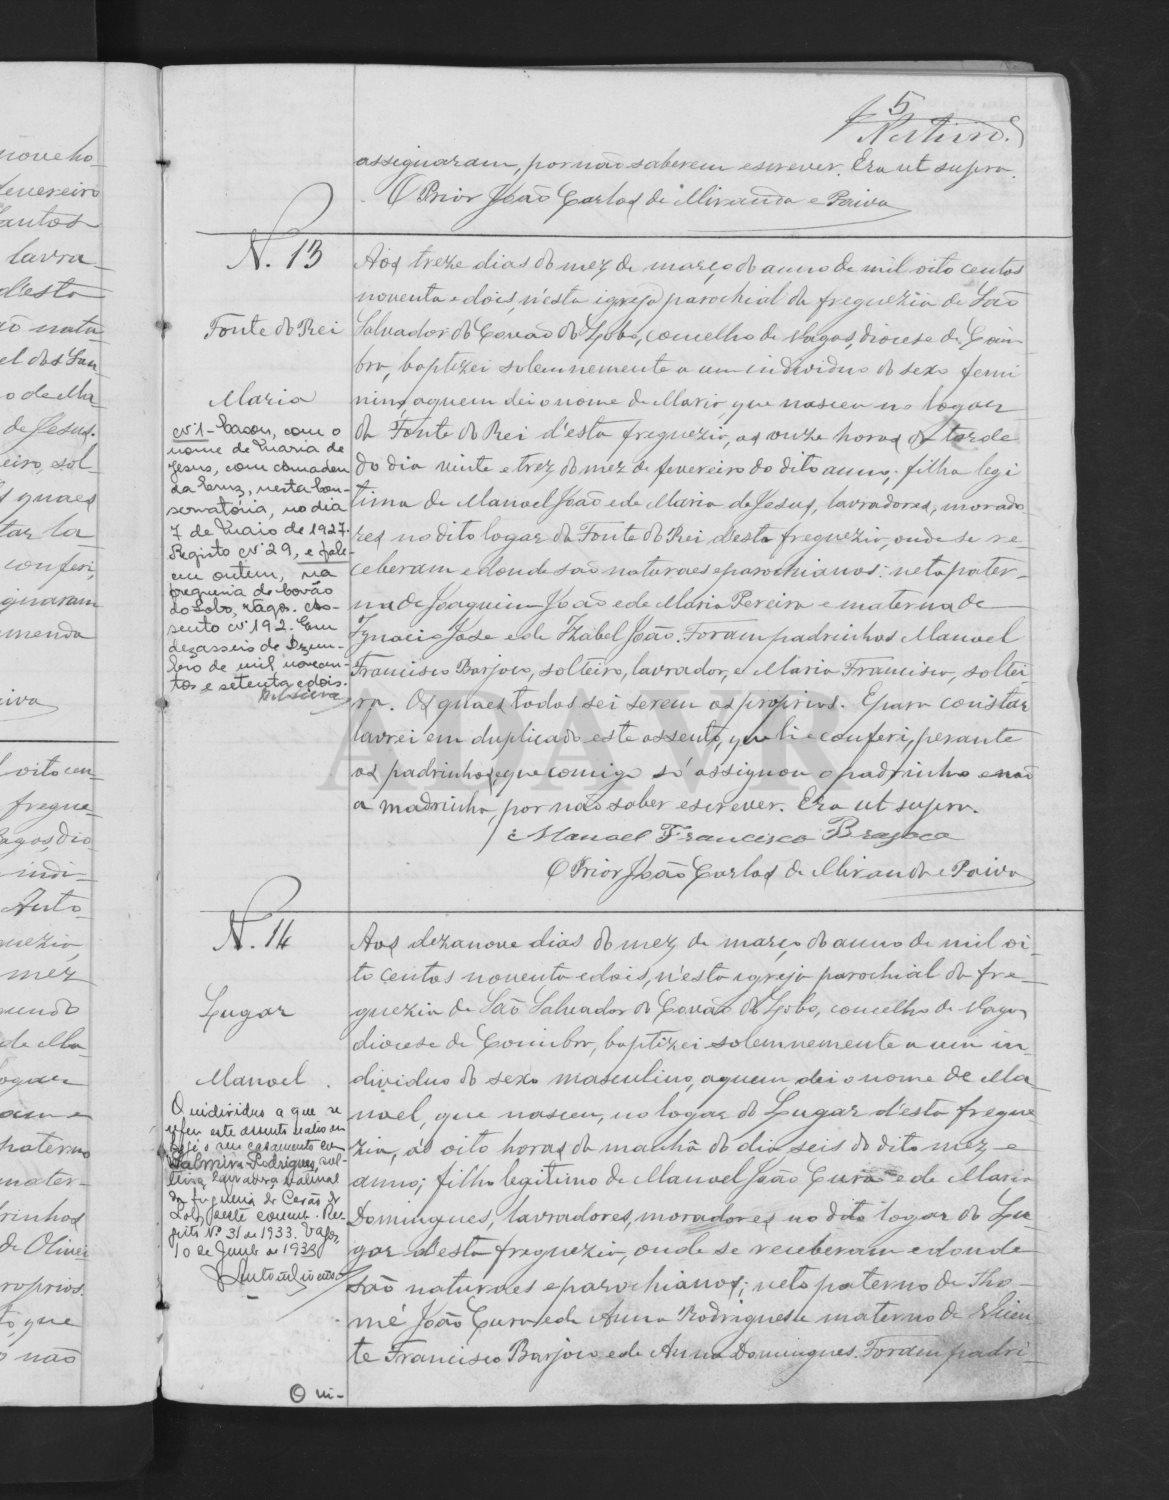 5
assignaram, por não saberem escrever. Era ut supra.
O Prior João Carlos de Miranda e Paiva
N. 13
Fonte do Rei
Maria
Nº 1 - Casou, com o
nome de Maria de
Jesus, com
da Cruz, nesta Con-
servatória, no dia
7 de Maio de 1927.
Registo nº 29, e fale-
ceu ontem, na
freguesia de Covão
do Lobo, Vagos. As-
sento nº 192. Em
dezasseis de Dezem-
bro de mil novecen-
tos e setenta e dois.
Aos treze dias do mez de março do anno de mil oito centos
noventa e dois, n'esta igreja parochial da freguezia de São
Salvador do Covão do Lobo, concelho de Vagos, diocese de Coim
bra, baptizei solemnemente a um individuo do sexo femi
nino, a quem dei o nome de Maria, que nasceu no logar
da Fonte do Rei d'esta freguezia, as onze horas da tarde
do dia vinte e trez do mez de fevereiro do dito anno; filha legi
tima de Manoel João e de Maria de Jesus, lavradores, morado
res no dito logar da Fonte do Rei d'esta freguezia, onde se re-
ceberam e donde são naturaes e parochianos: neta pater-
na de Joaquim João e de Maria Pereira e materna de
Ignacio José e de Izabel João. Foram padrinhos Manoel
Francisco Barjoco, solteiro, lavrador, e Maria Francisca, soltei-
ra. Os quaes todos sei serem os proprios. E para constar
lavrei em duplicado este assento, que li e conferi, perante
os padrinhos, e que comigo só assignou o padrinho e não
a madrinha, por não saber escrever. Era ut supra.
Manoel Francisco Brajoco
O Prior João Carlos de Miranda e Paiva
N. 14
Lugar
Manoel
O individuo a que se
refere este assento
o seu casamento com
Palmira Rodrigues, sol-
teira, natural
da freguesia de Covão do
Lobo, deste concelho. Re-
gisto Nº 31 de 1933. Vagos,
10 de Junho de 1933
Aos dezanove dias do mez de março do anno de mil oi-
to centos noventa e dois, n'esta igreja parochial da fre-
guezia de São Salvador do Covão do Lobo, concelho de Vagos
diocese de Coimbra, baptizei solemnemente a um in-
dividuo do sexo masculino, a quem dei o nome de Ma-
noel, que nasceu, no logar do Lugar d'esta fregue-
zia, ás oito horas da manhã do dia seis do dito mez e
anno; filho legitimo de Manoel João Cura e de Maria
Domingues, lavradores, moradores no dito logar do Lu-
gar d'esta freguezia, onde se receberam e donde
são naturaes e parochianos; neto paterno de Tho-
mé João Cura e de Anna Rodrigues e materno de Vicen-
te Francisco Barjoco e de Anna Domingues. Foram padri-
O ni-
ADAVR